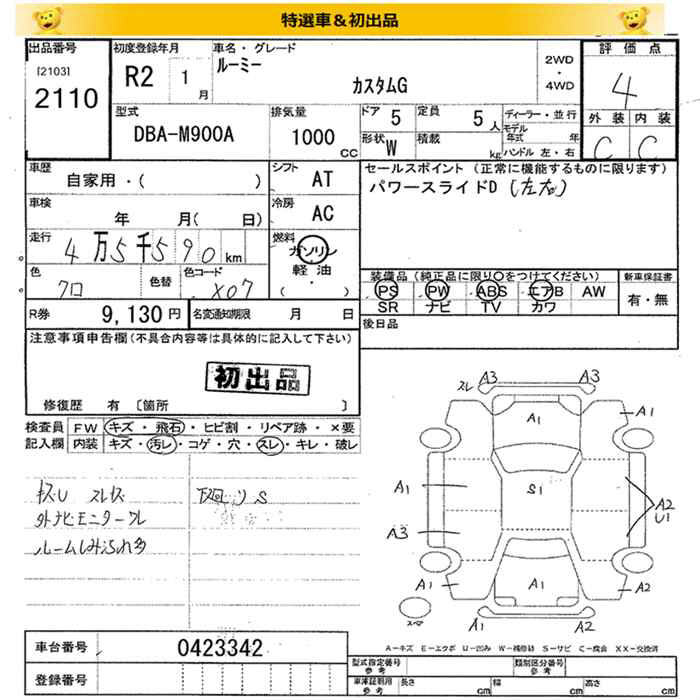 特選車＆初出品
出品番号 初度登録年月 車名・グレード 評価点
[2103] ルーミー 2WD・4WD
2110 R2 1月 カスタムG 4
型式 排気量 ドア 5 定員 5人 ディーラー・並行 外装 内装
DBA-M900A 1000CC 形状 W 積載 kg モデル年式 年 C C
ハンドル 左・右
車歴 シフト セールスポイント（正常に機能するものに限ります）
自家用・( ) AT パワースライドD (左右)
車検 冷房
年 月( 日) AC
走行 燃料
4万5千590km ガソリン・軽油・( )
色 色替 色コード 装備品（純正品に限り○をつけてください） 新車保証書
クロ X07 PS PW ABS エアB AW 有・無
SR ナビ TV カワ
R券 9,130円 名変通知期限 月 日 後日品
注意事項申告欄（不具合内容等は具体的に記入して下さい）
初出品
修復歴 有 〔箇所 〕
検査員 FW キズ・飛石・ヒビ割・リペア跡・×要
記入欄 内装 キズ・汚レ・コゲ・穴・スレ・キレ・破レ
スレ A3 A3
A1 A1
A1 S1 A2
U1
A3
A1 A1 A2
A1 A2
外ナビモニターワレ
車台番号 0423342
A－キズ E－エクボ U－凹み W－補修跡 S－サビ C－腐食 XX－交換済
登録番号 型式指定番号 参考 類別区分番号 参考
車庫証明用 参考 長さ cm 幅 cm 高さ cm